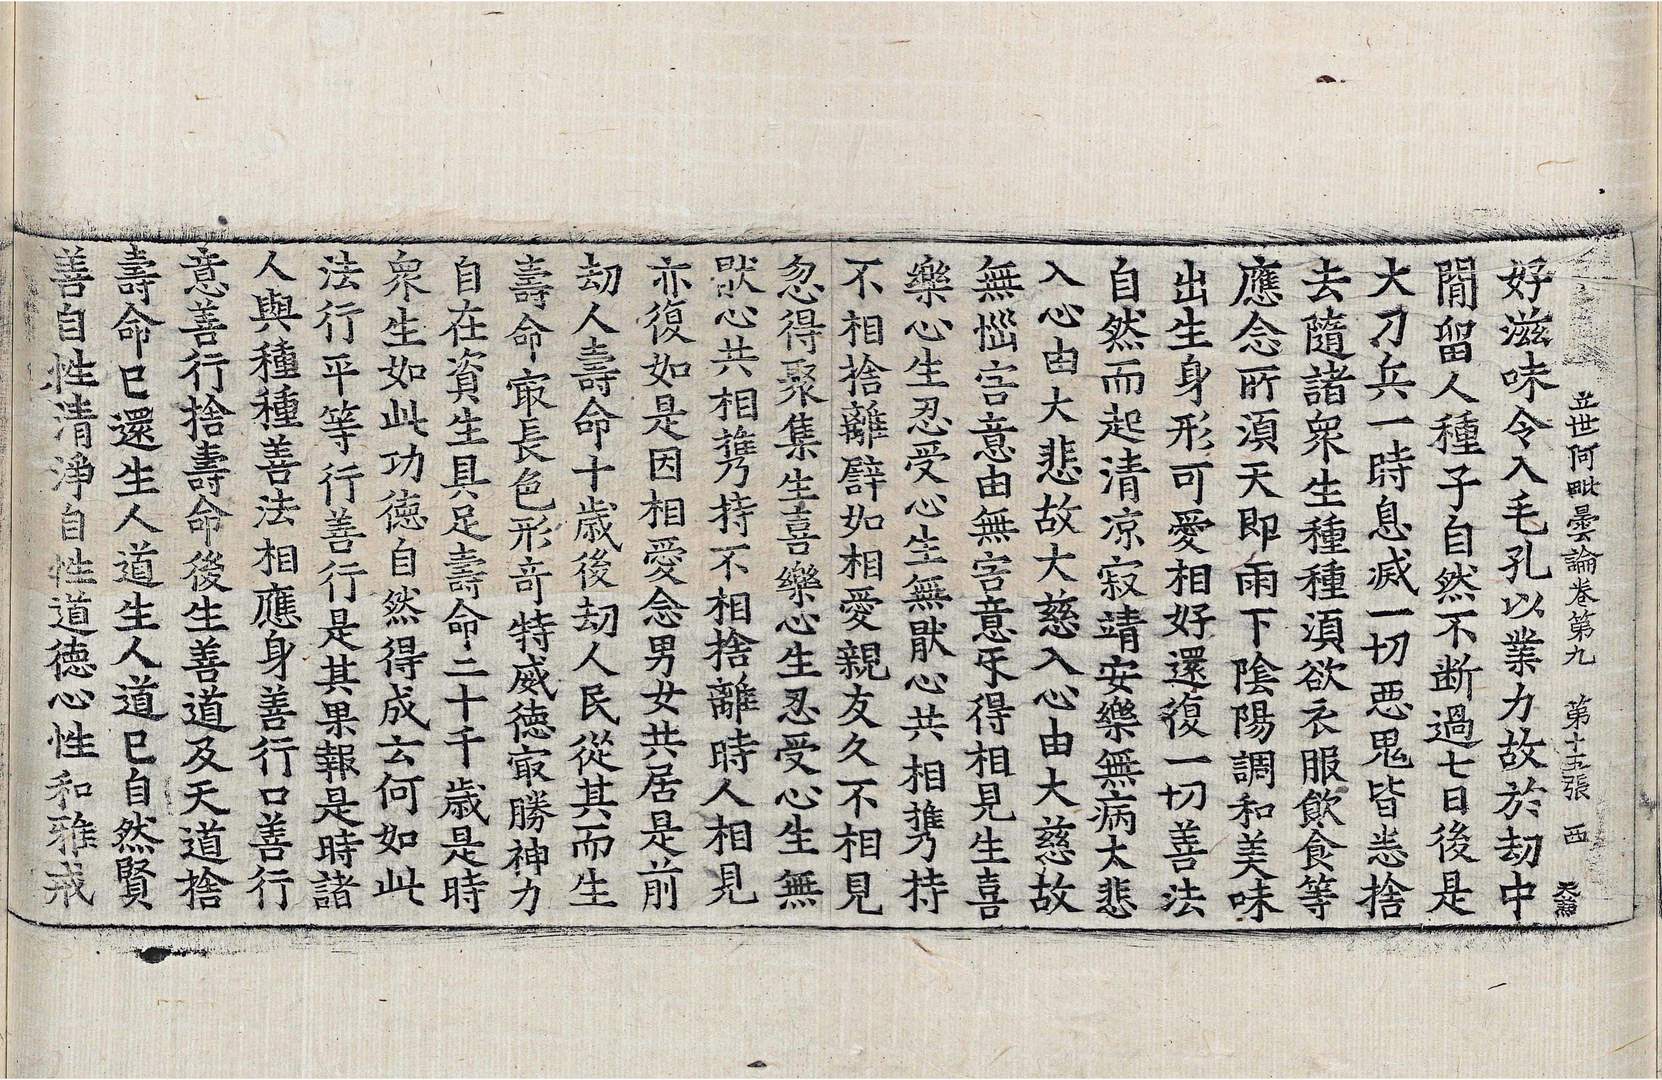 立世阿毗曇論卷第九　第十五張　西
好滋味令入毛孔以業力故於劫中
閒留人種子自然不断過七日後是
大刀兵一時息滅一切惡鬼皆悉捨
去隨諸衆生種種湏欲衣服飮食等
應念所湏天即雨下陰陽調和美味
出生身形可愛相好還復一切善法
自然而起清凉寂靖安樂無病大悲
入心由大悲故大慈入心由大慈故
無惱害意由無害意㸦得相見生喜
樂心生忍受心生無猒心共相攜持
不相捨離譬如相愛親友久不相見
忽得聚集生喜樂心生忍受心生無
猒心共相攜持不相捨離時人相見
亦復如是因相愛念男女共居是前
劫人壽命十歲後劫人民從其而生
壽命㝡長色形竒特威德㝡勝神力
自在資生具足壽命二十千歲是時
衆生如此功德自然得成云何如此
法行平等行善行是其果報是時諸
人與種種善法相應身善行口善行
意善行捨壽命後生善道及天道捨
壽命已還生人道生人道已自然賢
善自性清淨自性道德心性和雅戒